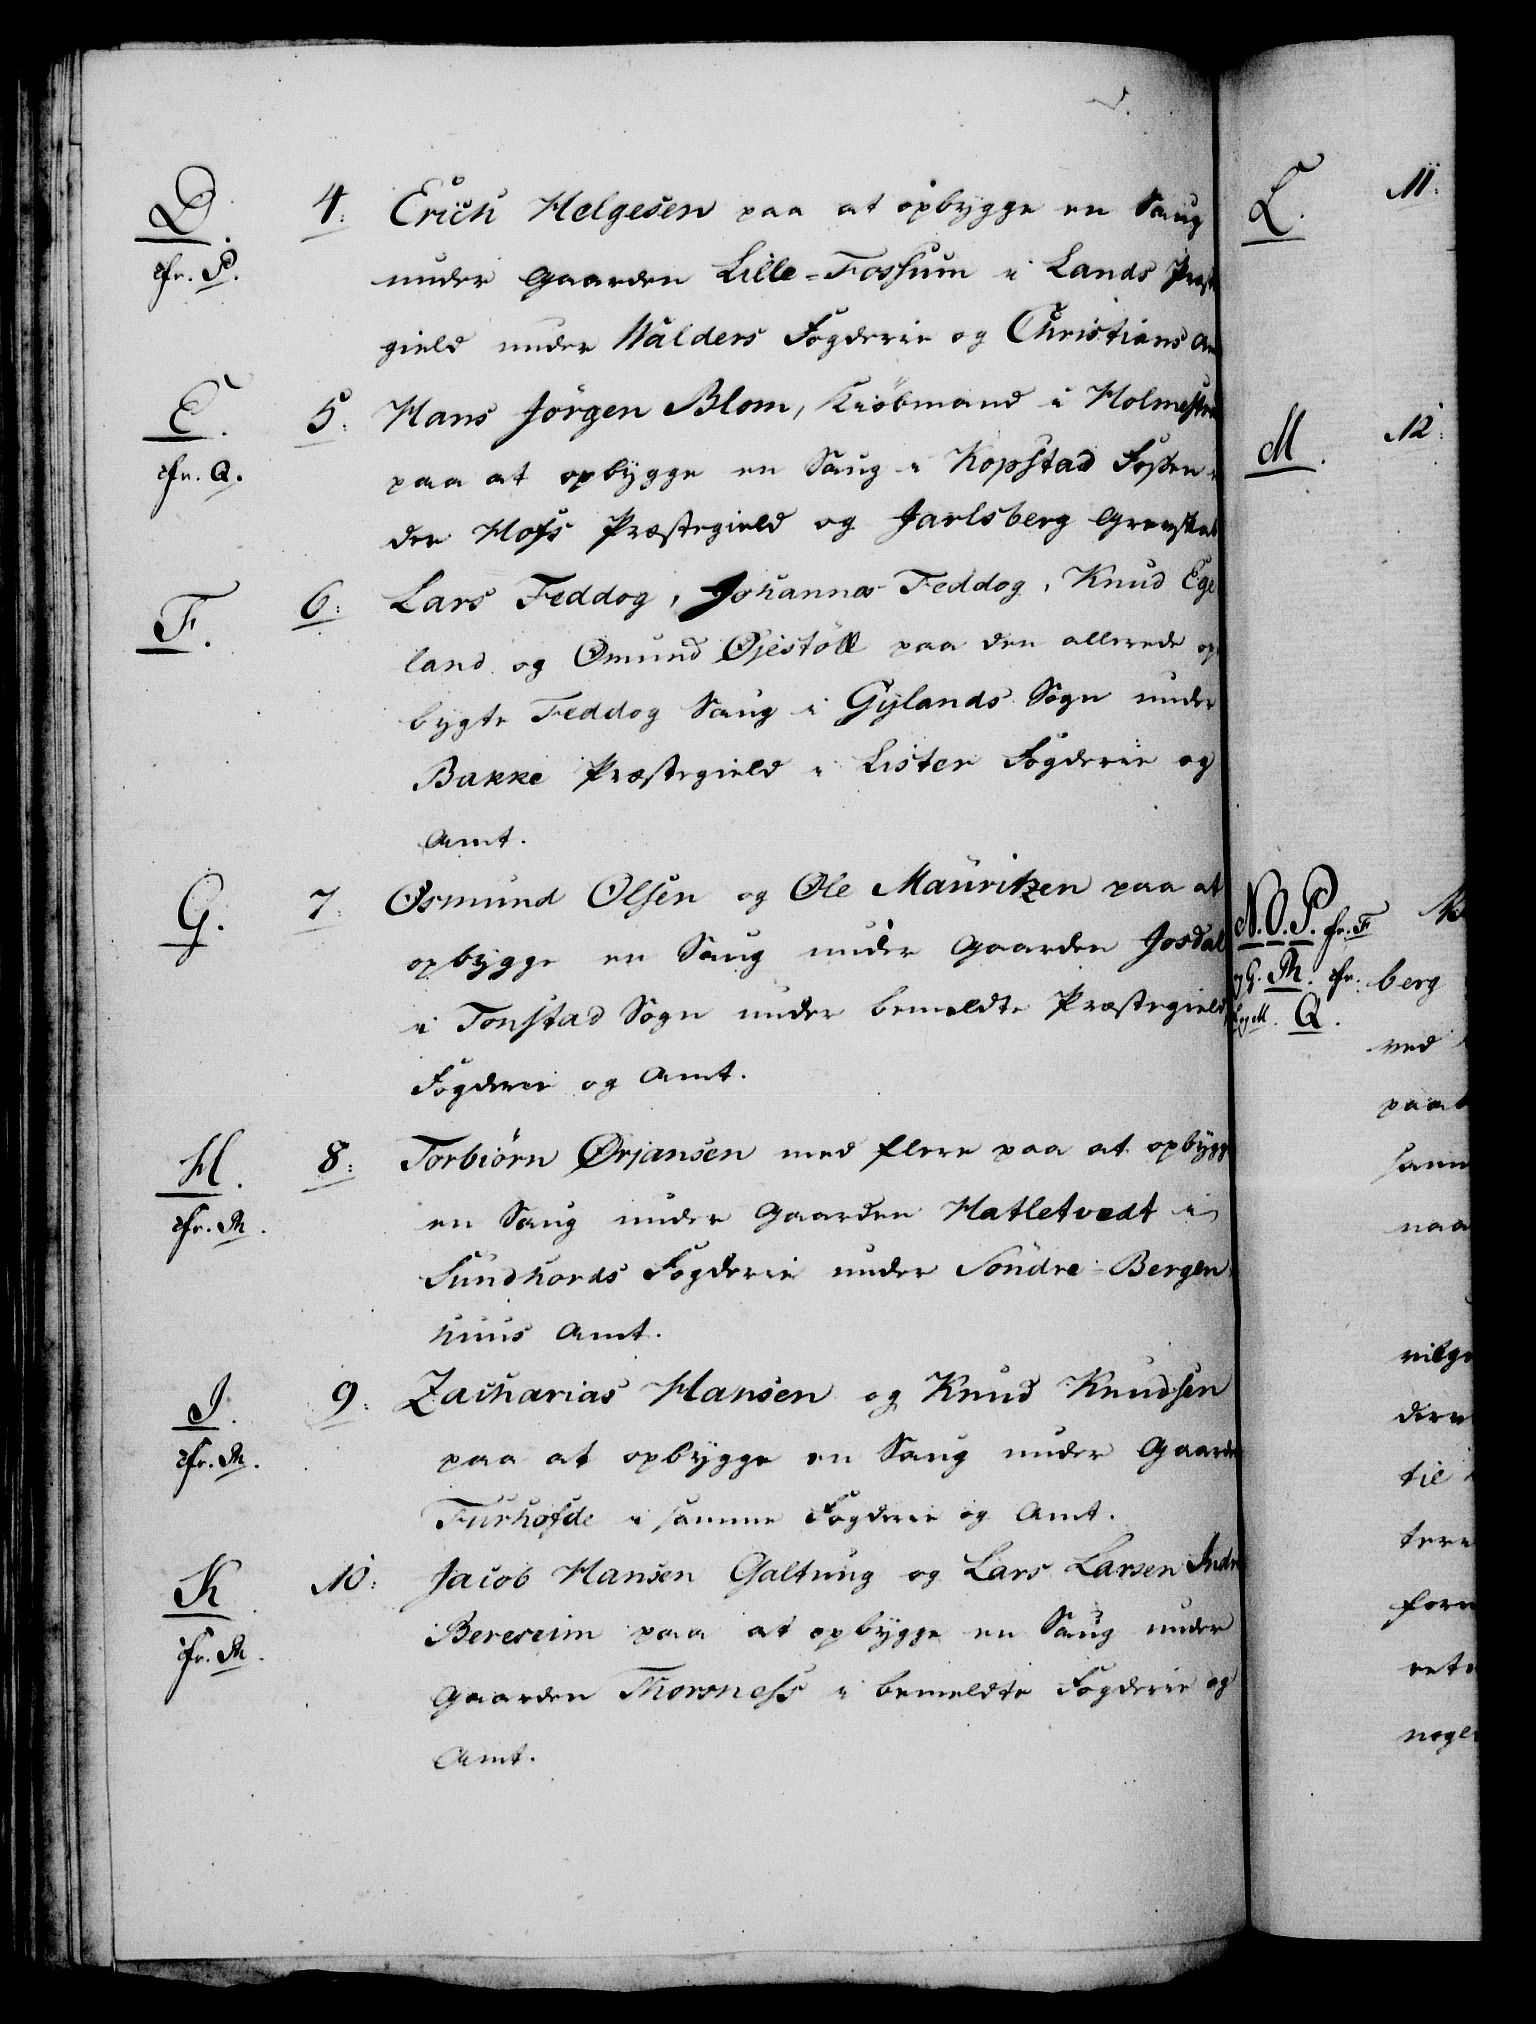 D. 4: Erich Helgesen paa at opbygge en Saug
cfr. P. under Gaarden Lille-Fossum i Lands Præste
gield under Walders Fogderie og Christians Am
E. 5: Hans Jörgen Blom, Kiöbmand i Holmestra
cfr. Q. paa at opbygge en Saug i Kopstad Fossen
der Hofs Præstegield og Jarlsberg Grevskab
F. 6: Lars Feddog, Johannes Feddog, Knud Ege
land og Omund Øjestöll paa den allerede op
bygte Feddog Saug i Gylands Sogn under
Bakke Præstegield i Lister Fogderie og
Amt.
G. 7: Osmund Olsen og Ole Mauritzen paa at
opbygge en Saug under Gaarden Josdal
i Tonstad Sogn under bemeldte Præstegield
Fogderie og Amt.
H. 8: Torbiörn Ørjansen med flere paa at opbygge
cfr. M. en Saug under Gaarden Hatletvedt i
Sundhords Fogderie under Söndre-Bergen
huus Amt.
I. 9: Zacharias Hansen og Knud Knudsen
cfr. M. paa at opbygge en Saug under Gaarden
Furhofde i samme Fogderie og Amt.
K. 10: Jacob Hansen Galtung og Lars Larsen Indre
cfr. M. Bereseim paa at opbygge en Saug under
Gaarden Thorsness i bemeldte Fogderie og
Amt.
L. 11:
M. 12:
N. O. P. fr. F
og G. M. cfr: berg
Q. ved
paab
samm
naa
derv
til
tere
forn